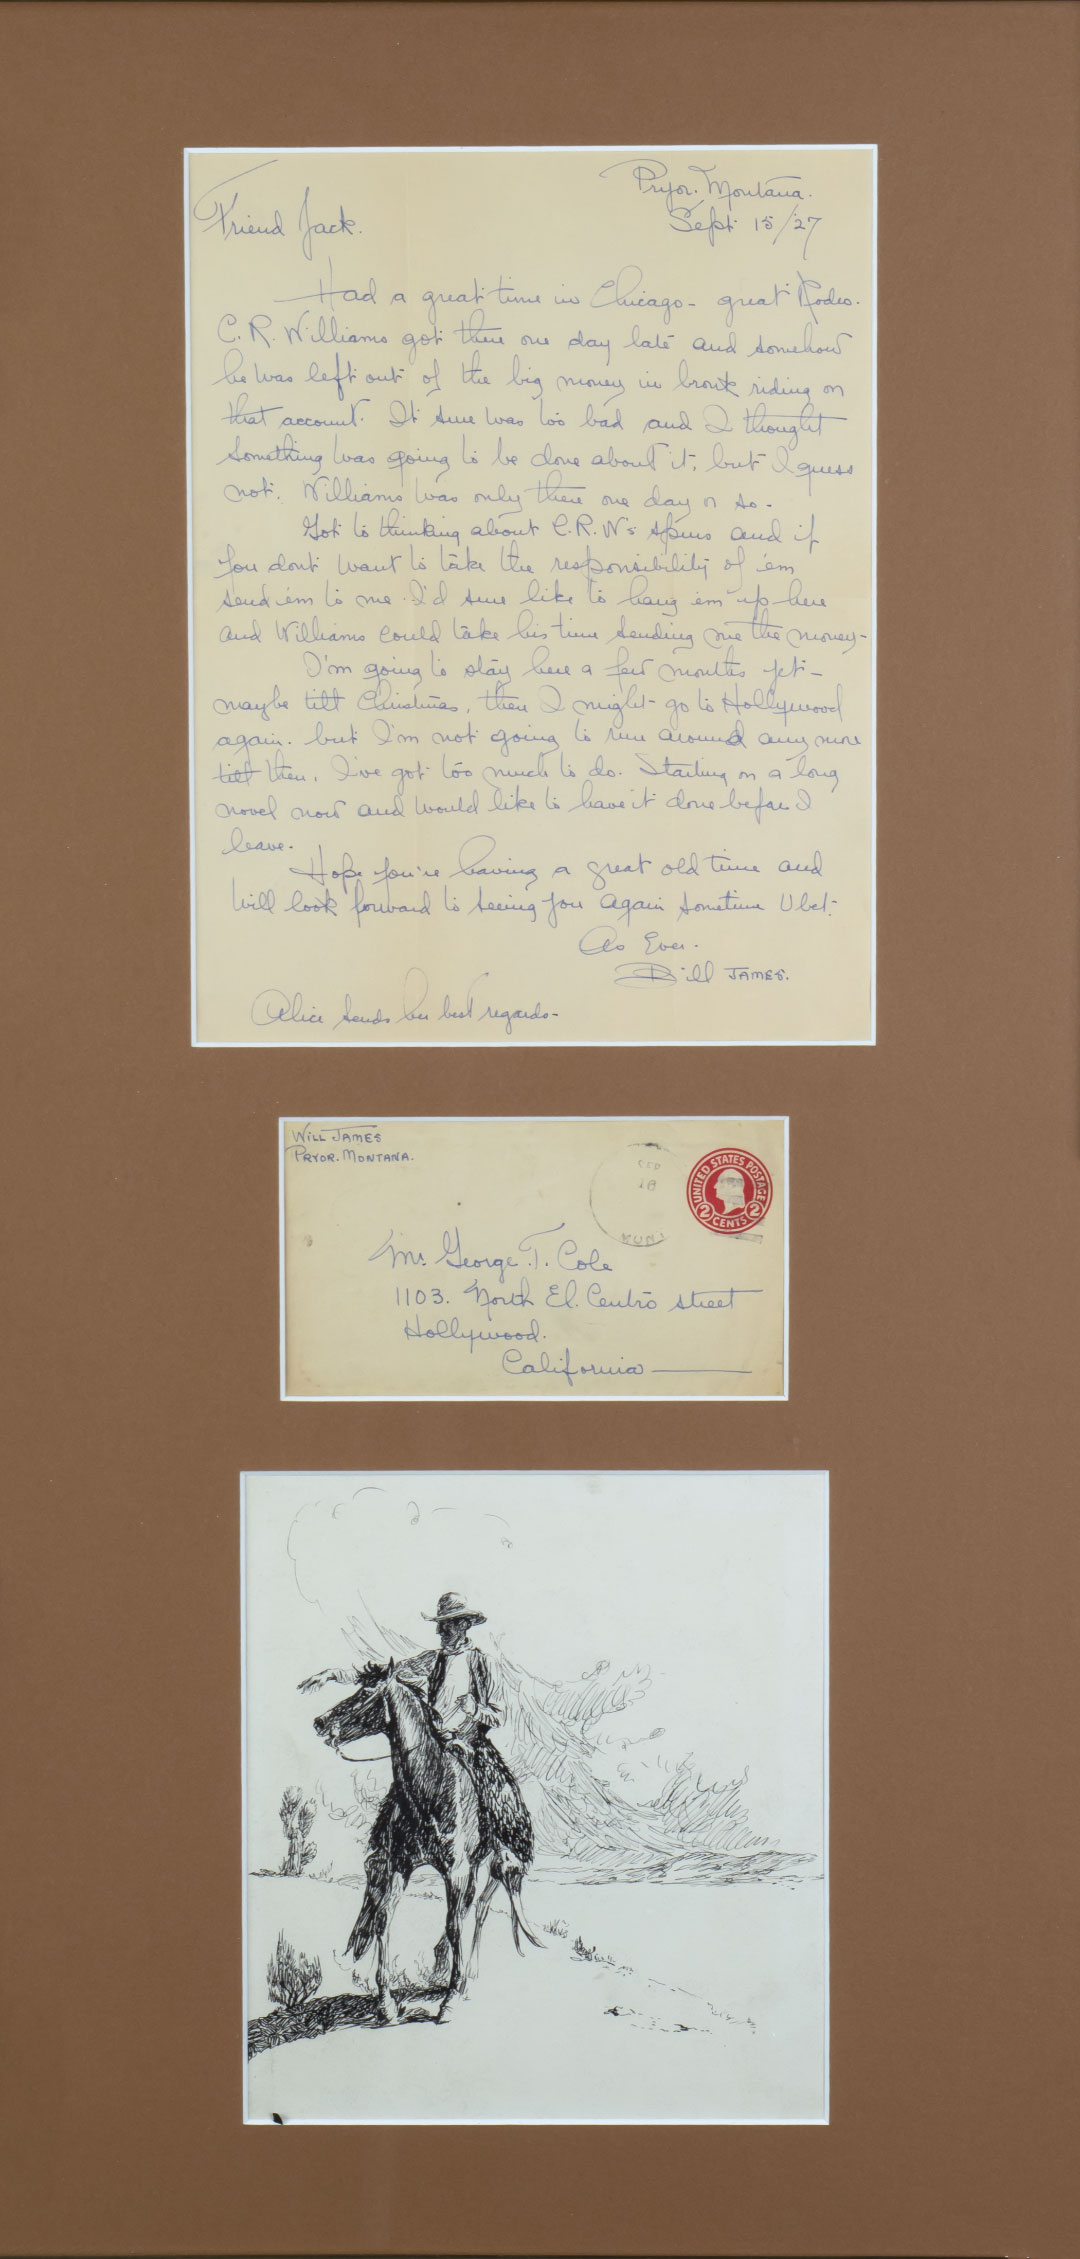 Pryor. Montana.
Sept 15/27
Friend Jack.
Had a great time in Chicago - great Rodeo.
C. R. Williams got there one day late and somehow
he was left out of the big money in bronk riding on
that account. It sure was too bad and I thought
something was going to be done about it, but I guess
not. Williams was only there one day or so -
Got to thinking about C.R.W's spurs and if
you dont want to take the responsibility of 'em
send 'em to me. I'd sure like to hang 'em up here
and Williams could take his time sending me the money -
I'm going to stay here a few months yet -
maybe till Christmas, then I might go to Hollywood
again. but I'm not going to run around any more
till then. I've got too much to do. Starting on a long
novel now and would like to have it done before I
leave.
Hope you're having a great old time and
will look forward to seeing you again sometime U bet.
As Ever.
Bill JAMES.
Alice sends her best regards -
WILL JAMES
PRYOR. MONTANA.
SEP
18
MONT
UNITED STATES POSTAGE
2 CENTS 2
Mr. George T. Cole
1103. North El. Centro street
Hollywood.
California